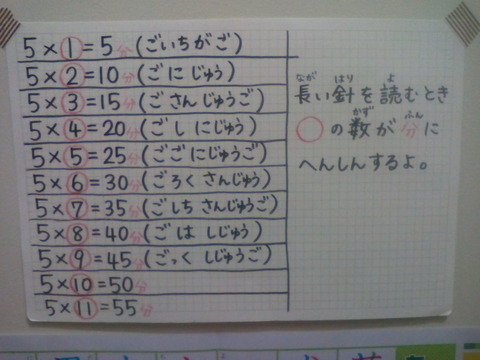 5×1=5分(ごいちがご)
5×2=10分(ごにじゅう)
5×3=15分(ごさんじゅうご)
5×4=20分(ごしにじゅう)
5×5=25分(ごごにじゅうご)
5×6=30分(ごろくさんじゅう)
5×7=35分(ごしちさんじゅうご)
5×8=40分(ごはしじゅう)
5×9=45分(ごっくしじゅうご)
5×10=50分
5×11=55分
なが はり よ
長い針を読むとき
かず ふん
○の数が分に
へんしんするよ。